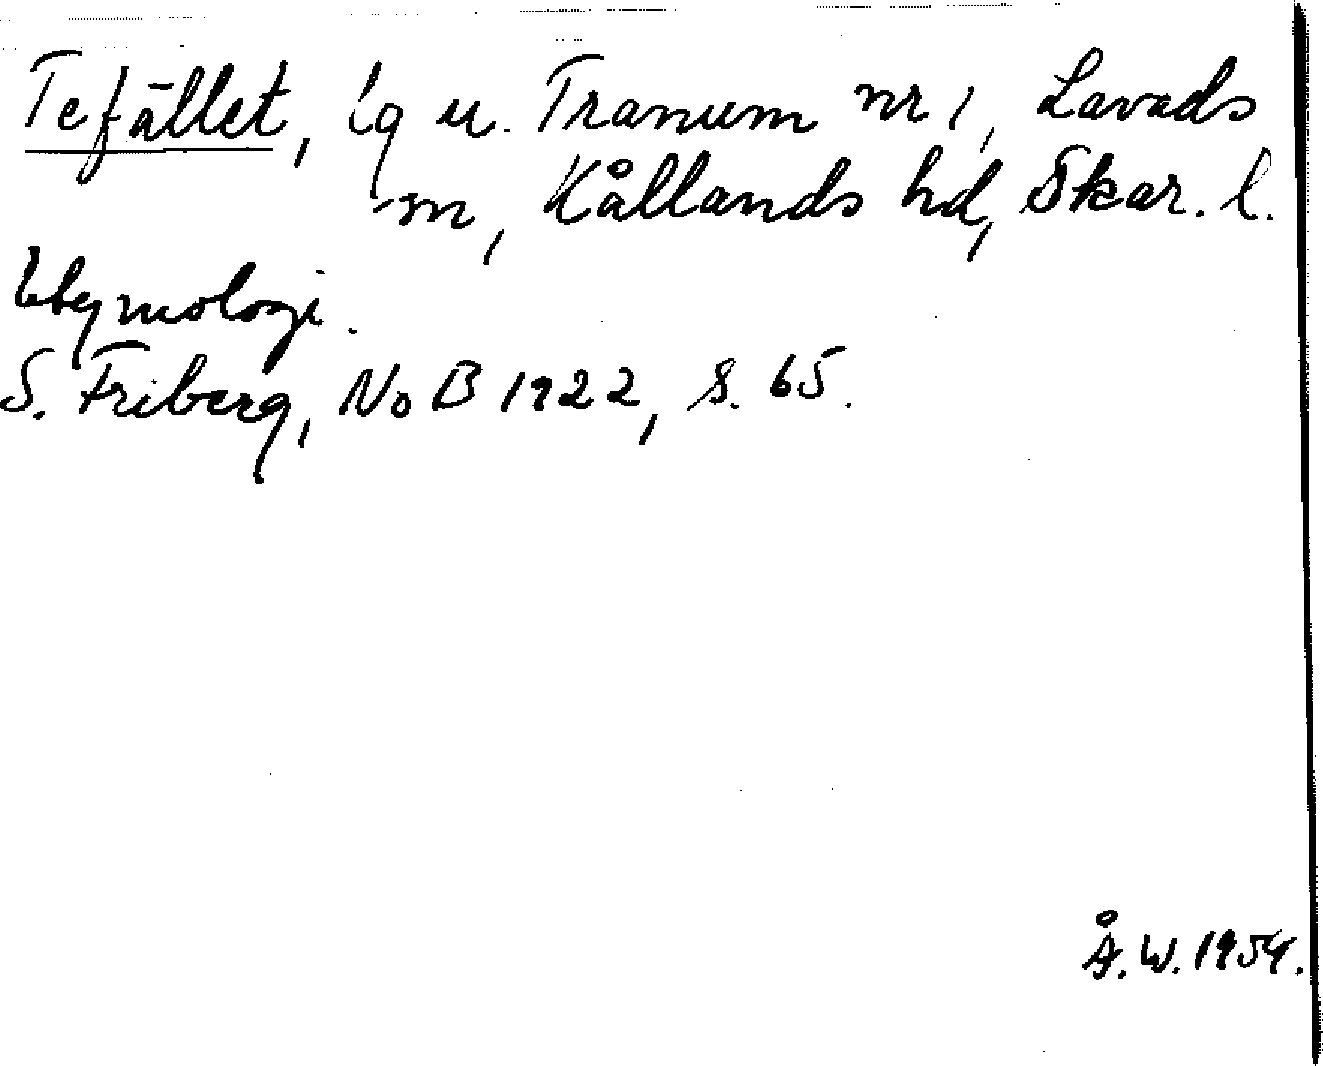 Tefället, lg u. Tranum nr 1, Lavads
sn, Kållands hd, Skar. l.
Etymologi.
S. Friberg, NoB 1922, s. 65.
Å. W. 1954.